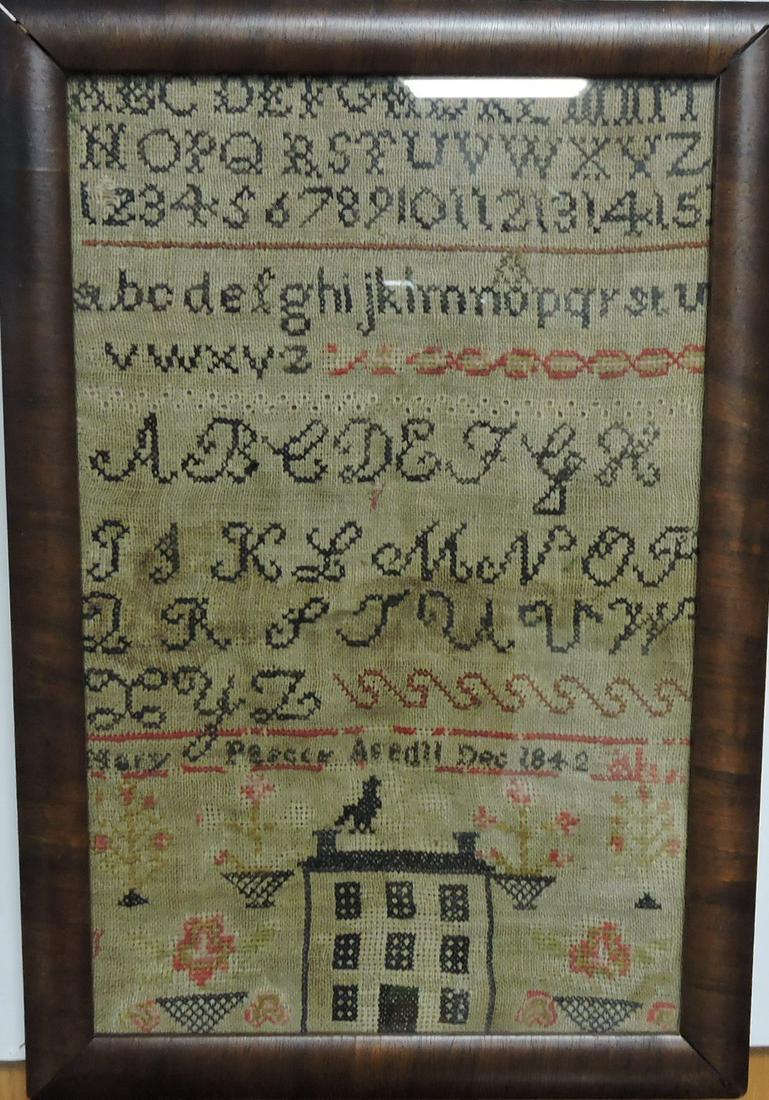 ABCDEFGHIJKLMM
NOPQRSTUVWXYZ
1 2 3 4 5 6 7 8 9 10 11 12 13 14 15
abcdefghijklmnopqrstu
vwxyz
ABCDEFGH
IJKLMNOP
QRSTUVW
XYZ
Mary Aged 11 Dec 1842